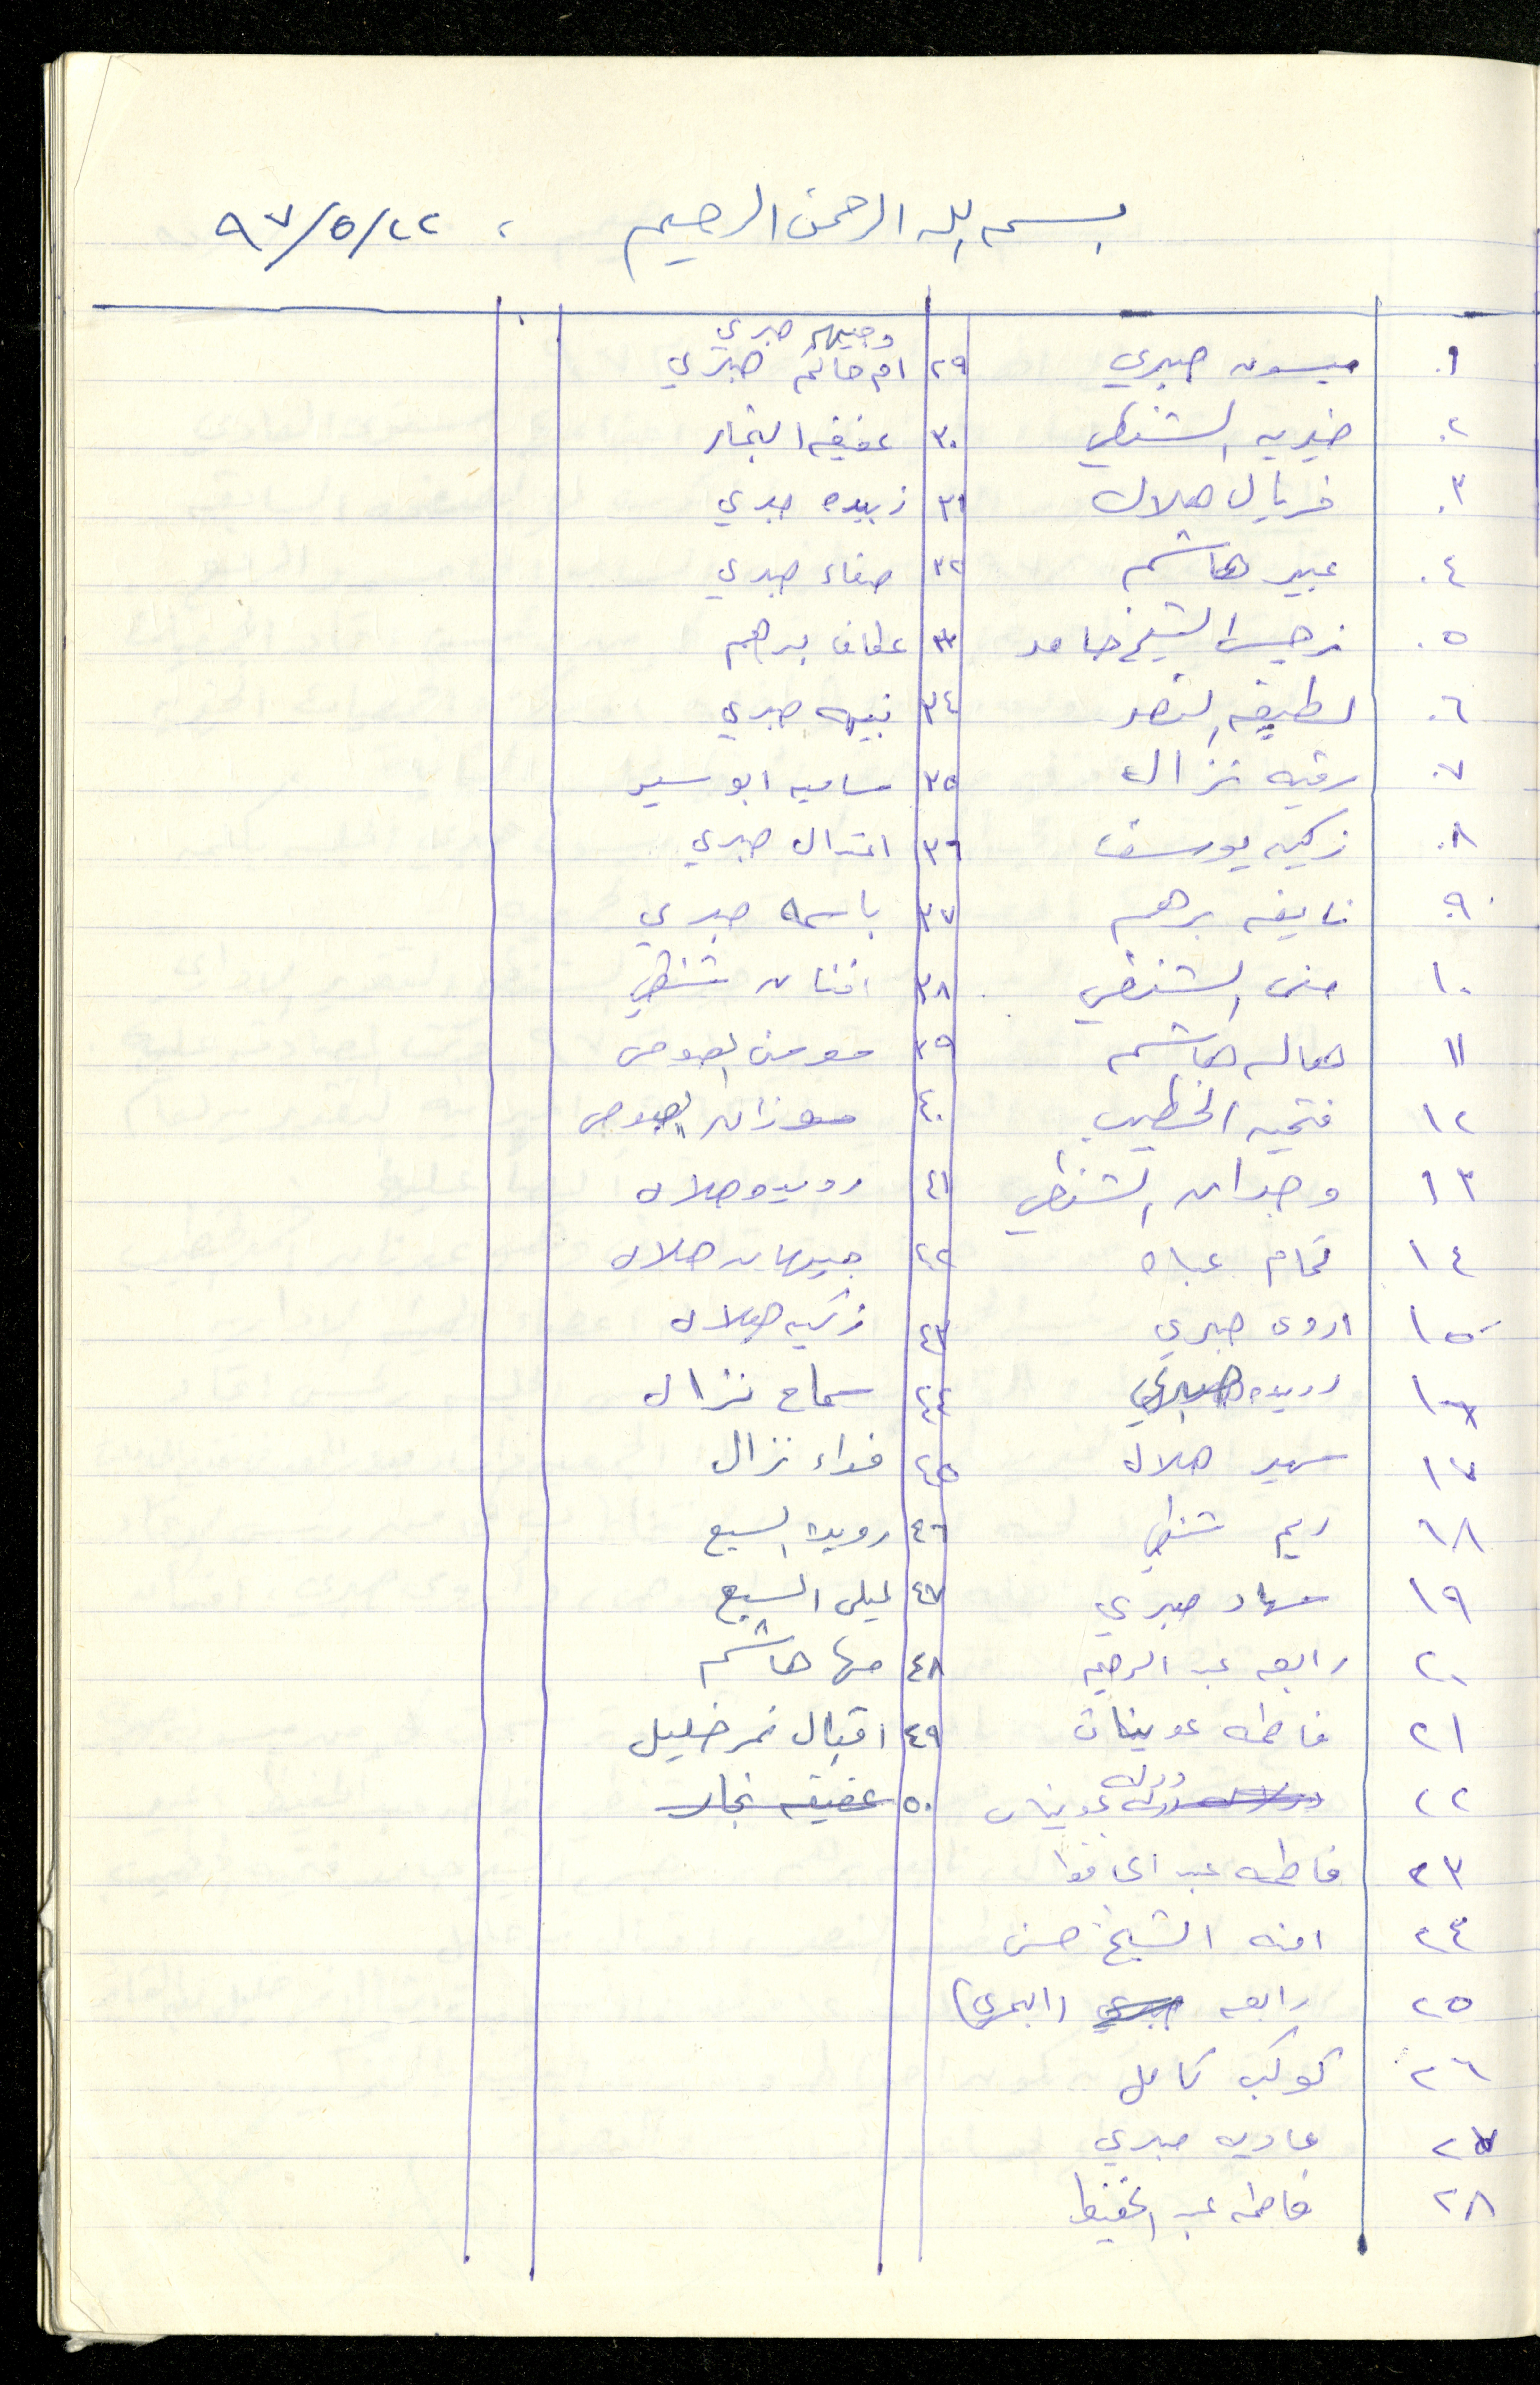 بسم الله الرحمن الرحيم ، ٩٧/٥/٢٢
١. ميسون صبري
٢. خيريه الشنطي
٣. فريال هلال
٤. عبير هاشم
٥. نرجس الشيخ حامد
٦. لطيفه النصر
٧. رقيه نزال
٨. زكيه يوسف
٩. نايفه برهم
١٠ منى الشنطي
١١ هاله هاشم
١٢ فتحيه الخطيب
١٣ وجدان الشنطي
١٤ تمام عباه
١٥ اروى صبري
١٦ رويده صبري
١٧ سهير هلال
١٨ ريم شنطي
١٩ سهاد صبري
٢٠ رابعه عبد الرحيم
٢١ فاطمه عوينات
٢٢ دوله عوينات
٢٣ فاطمه عبد الحافظ
٢٤ امنه الشيخ حسن
٢٥ رابعه صبري
٢٦ كوكب كامل
٢٧ عاديه صبري
٢٨ فاطمه عبد الحفيظ
وجيهه صبري
٢٩ ام حاتم صبري
٣٠ عفيفه النجار
٣١ زبيده صبري
٣٢ صفاء صبري
٣٣ عطاف برهم
٣٤ نبيهه صبري
٣٥ ساميه ابو سير
٣٦ اعتدال صبري
٣٧ باسمه صبري
٣٨ افنان شنطي
٣٩ مومن
٤٠ سوزان
٤١ رويده هلال
٤٢ جيهان هلال
٤٣ زكيه هلال
٤٤ سماح نزال
٤٥ فداء نزال
٤٦ رويده السبع
٤٧ ليلى السبع
٤٨ مها هاشم
٤٩ اقبال نمر خليل
٥٠ عفيفه نجار